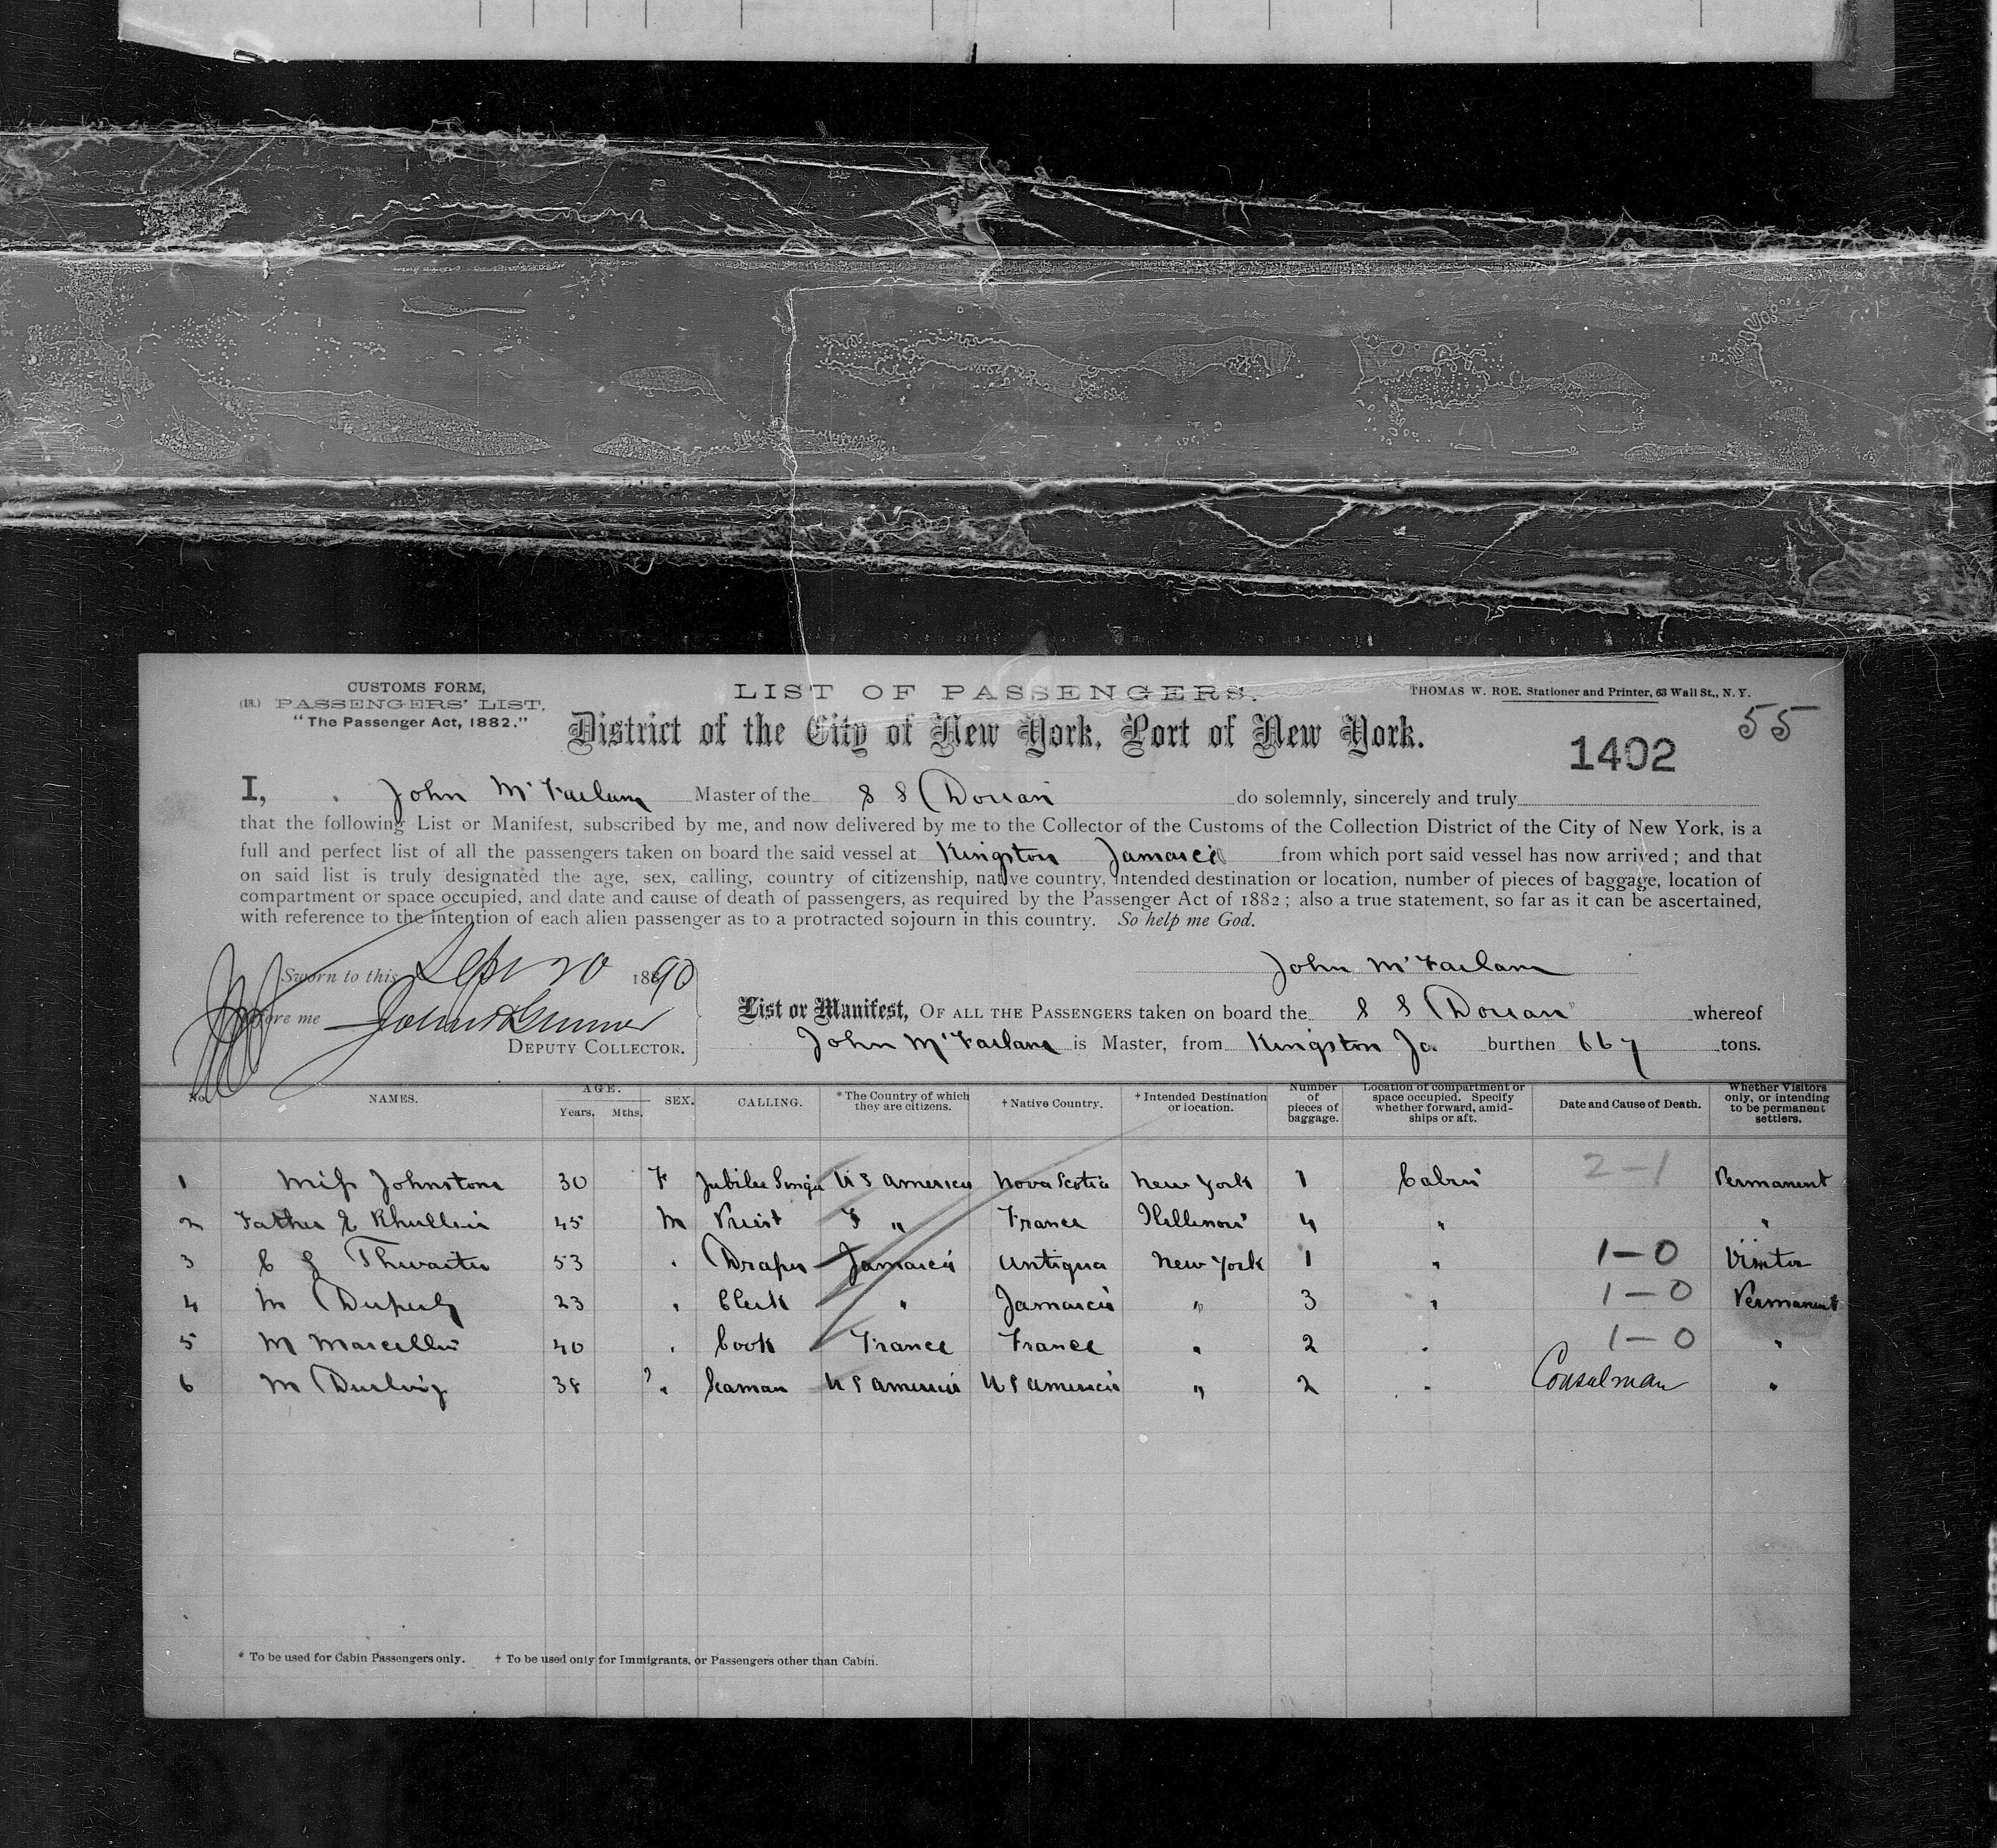 CUSTOMS FORM,
(18.) PASSENGERS' LIST.
"The Passenger Act, 1882."
LIST OF PASSENGERS.
THOMAS W. ROE. Stationer and Printer, 63 Wall St., N. Y.
55
District of the City of New York, Port of New York.
1402
I, John McFarlane Master of the S S Dorian do solemnly, sincerely and truly
that the following List or Manifest, subscribed by me, and now delivered by me to the Collector of the Customs of the Collection District of the City of New York, is a
full and perfect list of all the passengers taken on board the said vessel at Kingston Jamaica from which port said vessel has now arrived; and that
on said list is truly designated the age, sex, calling, country of citizenship, native country, intended destination or location, number of pieces of baggage, location of
compartment or space occupied, and date and cause of death of passengers, as required by the Passenger Act of 1882; also a true statement, so far as it can be ascertained,
with reference to the intention of each alien passenger as to a protracted sojourn in this country. So help me God.
Sworn to this Sept 20 1890
John McFarlane
before me
DEPUTY COLLECTOR.
List or Manifest, OF ALL THE PASSENGERS taken on board the S S Dorian whereof
John McFarlane is Master, from Kingston Ja. burthen 667 tons.
No. NAMES. AGE. Years. Mths. SEX. CALLING. * The Country of which they are citizens. † Native Country. † Intended Destination or location. Number of pieces of baggage. Location of compartment or space occupied. Specify whether forward, amidships or aft. Date and Cause of Death. Whether Visitors only, or intending to be permanent settlers.
1 Miss Johnstone 30 F Jubilee Singer U S America Nova Scotia New York 1 Cabin 2-1 Permanent
2 Father 45 M Priest " France Illenois 4 " "
3 C Thwaites 53 " Draper Jamaica Antigua New York 1 " 1-0 Visitor
4 M Duperly 23 " Clerk " Jamaica " 3 " 1-0 Permanent
5 M Marcellin 40 " Cook France France " 2 " 1-0 "
6 M 38 " Seaman U S America U S America " 2 " Consulman "
* To be used for Cabin Passengers only. † To be used only for Immigrants, or Passengers other than Cabin.